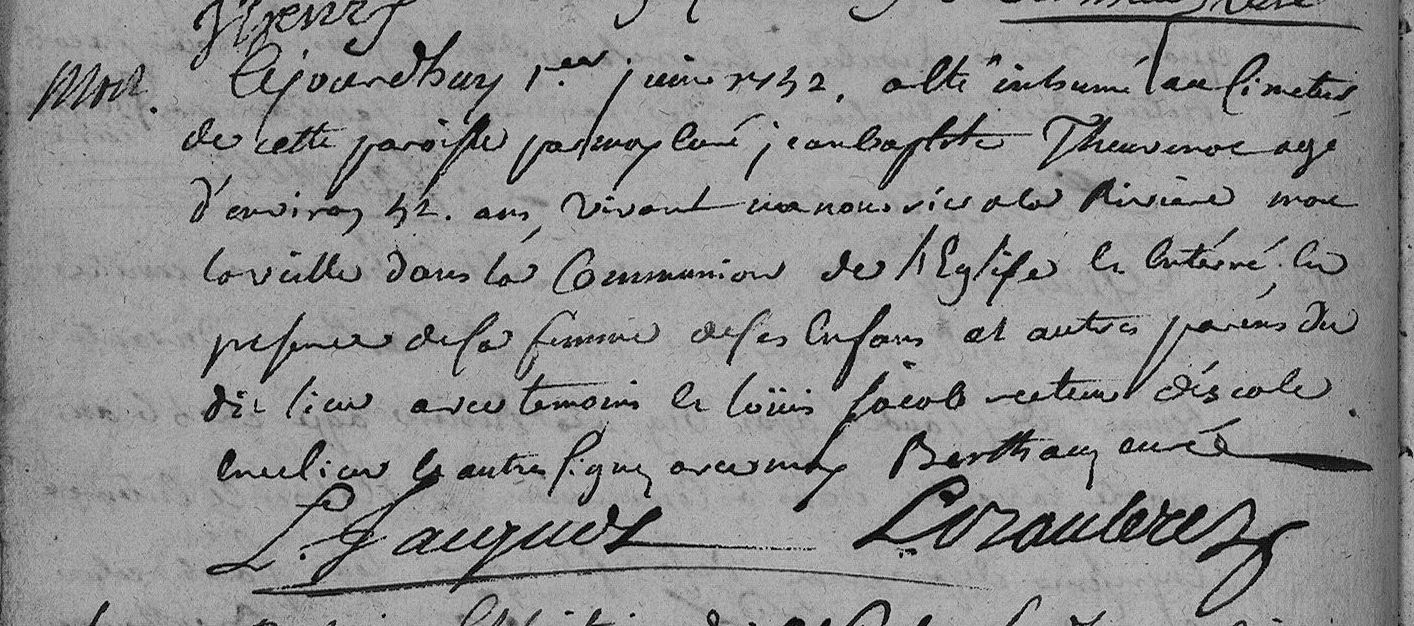 Mort.
Cejourdhuy 1er juin 1752, a eté inhumé au Cimetier
de cette paroisse par moy Curé jean baptiste Thevenot agé
d'environ 52. ans, vivant manouvrier a la Riviere mort
la veille dans la Communion de l'Eglise et Enterré En
presence de sa femme de ses Enfans et autres parens du
dit lieu avec temoins et Loüis Jacob recteur d'éscole
en ce lieu et autres signez avec moy Berthaux curé
L. Jacquot